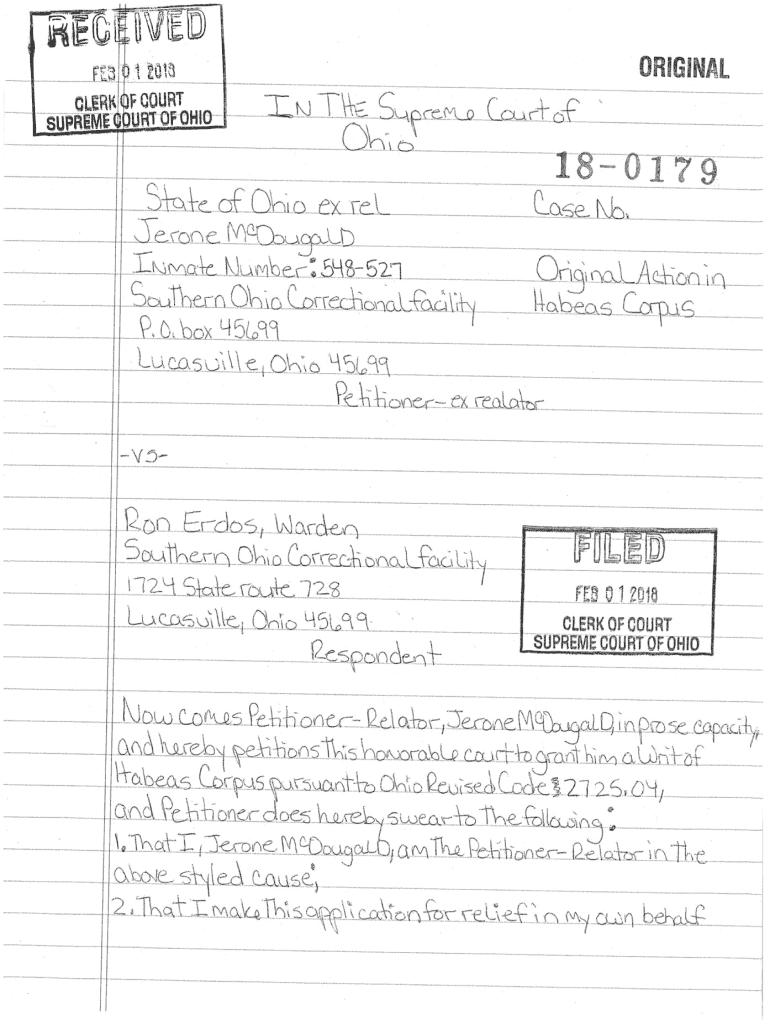 RECEIVED
FEB 01 2018
CLERK OF COURT
SUPREME COURT OF OHIO
ORIGINAL
IN THE Supreme Court of
Ohio
18-0179
State of Ohio ex rel
Case No.
Jerone McDougalD
Inmate Number: 548-527
Original Action in
Southern Ohio Correctional facility
Habeas Corpus
P.O. box 45699
Lucasville, Ohio 45699
Petitioner-ex realator
-vs-
Ron Erdos, Warden
Southern Ohio Correctional facility
1724 State route 728
Lucasville, Ohio 45699
Respondent
FILED
FEB 01 2018
CLERK OF COURT
SUPREME COURT OF OHIO
Now comes Petitioner-Relator, Jerone McDougalD, in pro se capacity,
and hereby petitions This honorable court to grant him a Writ of
Habeas Corpus pursuant to Ohio Revised Code § 2725.04,
and Petitioner does hereby swear to The following:
1. That I, Jerone McDougalD, am The Petitioner-Relator in The
above styled cause;
2. That I make This application for relief in my own behalf